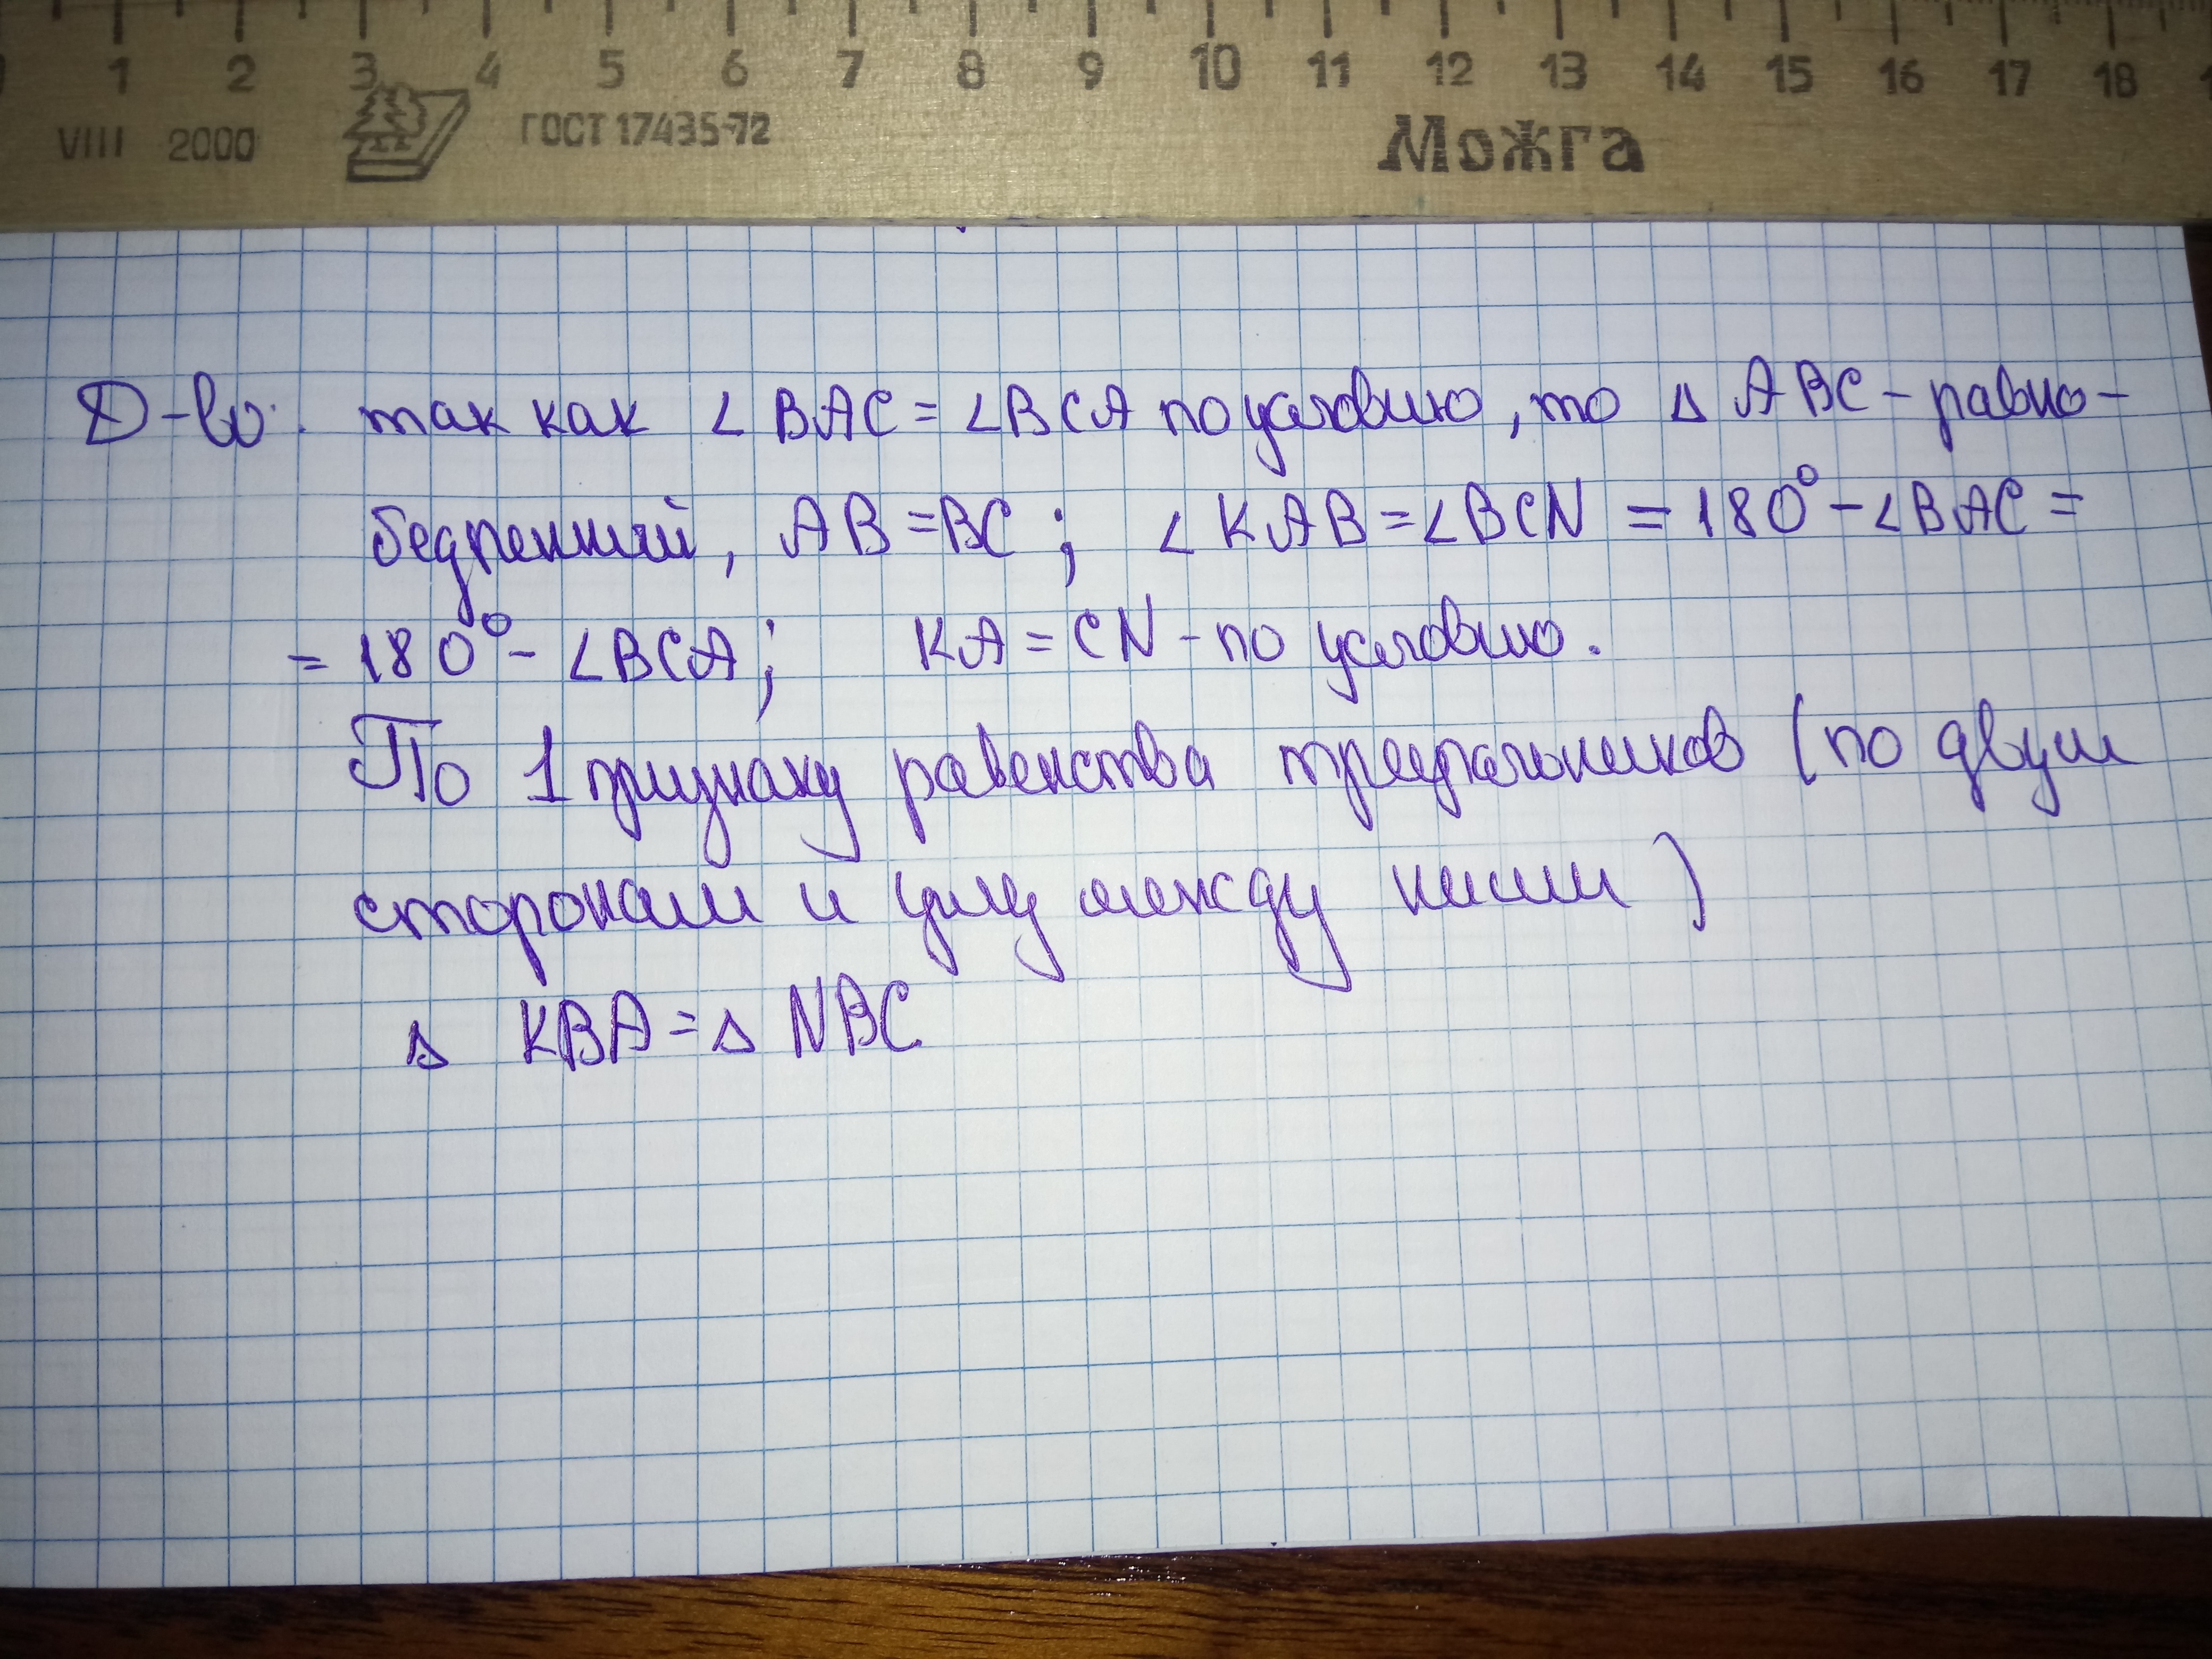 1 2 3 4 5 6 7 8 9 10 11 12 13 14 15 16 17 18
VIII 2000 ГОСТ 17435-72 Можга
Д-во: так как ∠BAC = ∠BCA по условию, то Δ ABC - равно-
бедренный, AB = BC ; ∠KAB = ∠BCN = 180° - ∠BAC =
= 180° - ∠BCA; KA = CN - по условию.
По 1 признаку равенства треугольников (по двум
сторонам и углу между ними)
Δ KBA = Δ NBC